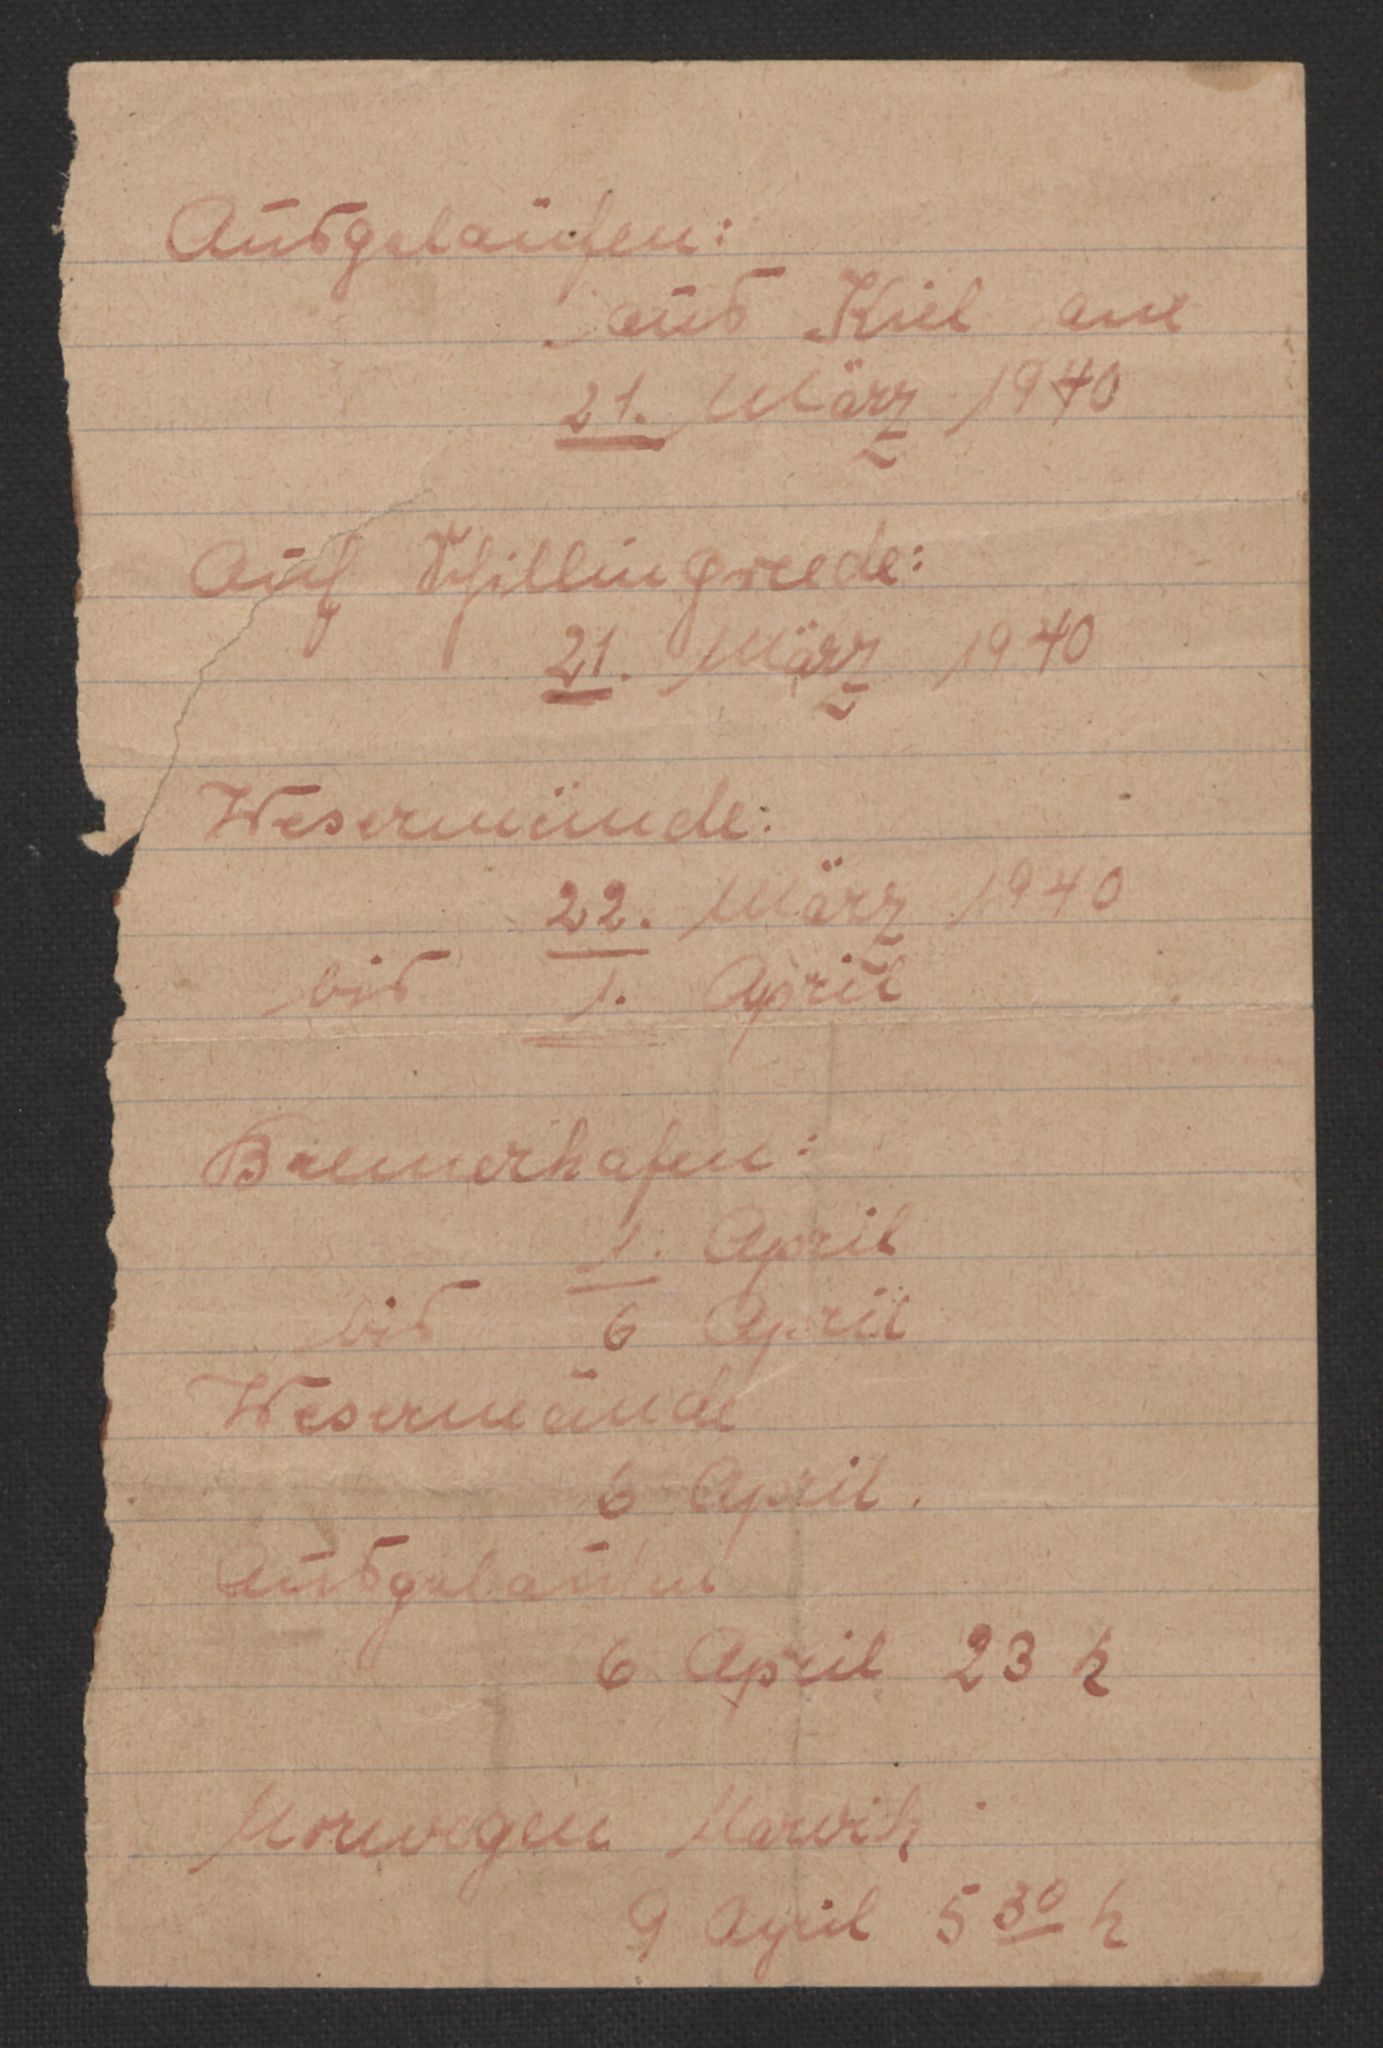 Ausgelaufen:
aus Kiel am
21. März 1940
Auf Schillingreede:
21. März 1940
Wesermünde:
22. März 1940
bis 1. April
Bremerhafen:
1. April
bis 6 April
Wesermünde
6 April.
Ausgelaufen
6 April 23 h
Norwegen Narvik
9 April 5 30 h